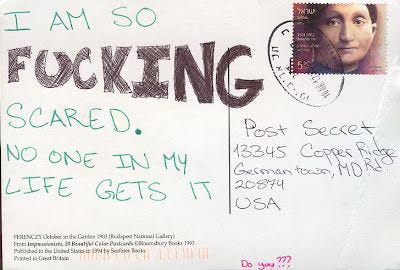 I AM SO
FUCKING
SCARED.
NO ONE IN MY
LIFE GETS IT
ישראל
ISRAEL
Post Secret
13345 Copper Ridge Rd
Germantown, MD
20874
USA
FERENCZY October in the Garden 1903 (Budapest National Gallery)
From Impressionists, 20 Beautiful Color Postcards ©Bloomsbury Books 1993.
Published in the United States in 1994 by Seafarer Books
Printed in Great Britain
Do you???